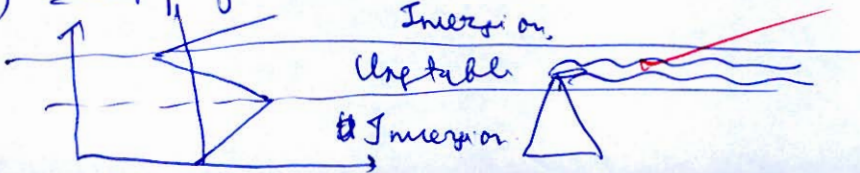 Inversion.
Unstable
Inversion